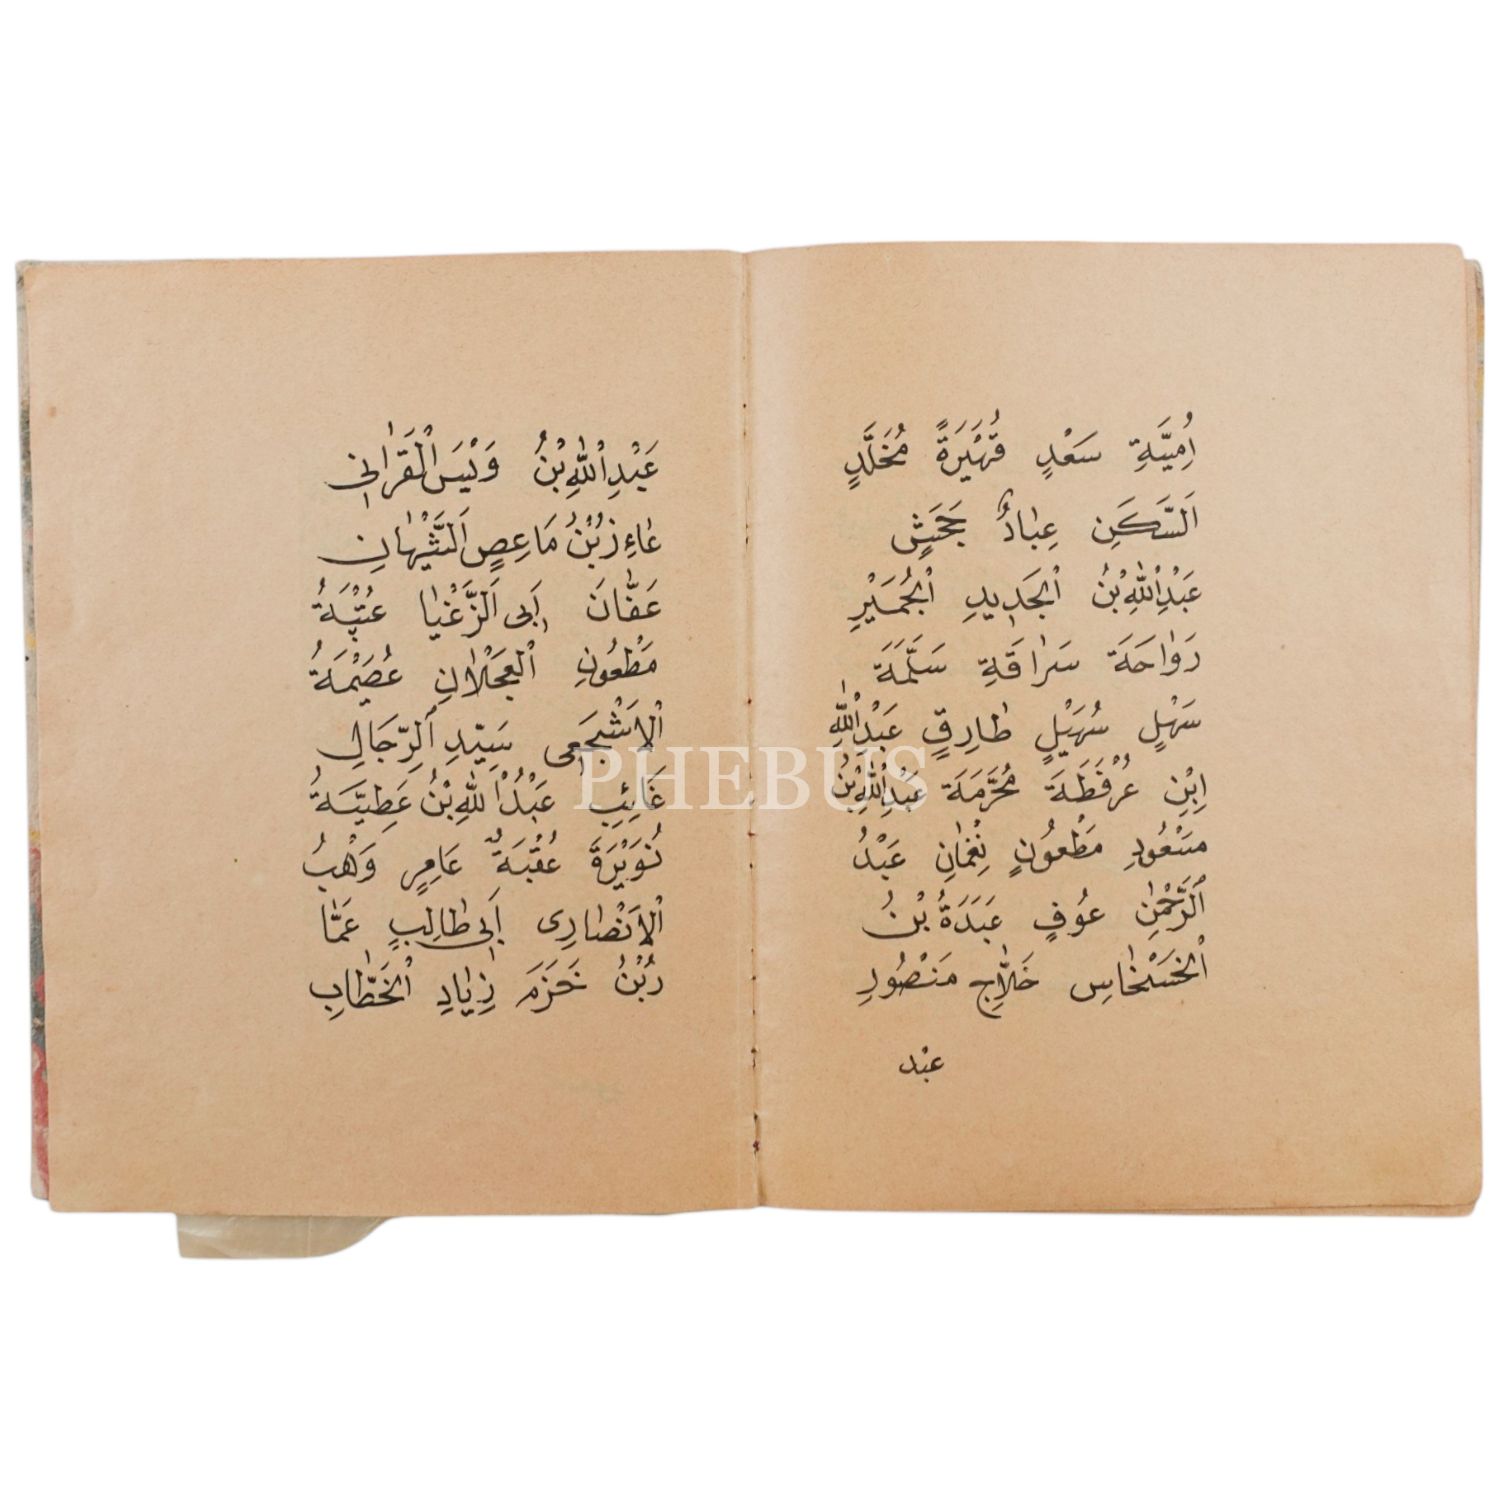 اُمِيَّةِ سَعْدٍ قُهَيْرَةً مُخَلَّدٍ
اَلسَّكَنِ عِبَادٌ جَحَشٍ
عَبْدِاللّٰهِ بْنُ الْجَدِيدِ الْجُمَيْرِ
رَوَاحَةَ سَرَاقَةِ سَلَّمَةَ
سَهْلٍ سُهَيْلٍ طَارِقٍ عَبْدِاللّٰهِ
اِبْنِ عُرْفَطَةَ مُحَرَّمَةَ عَبْدِاللّٰهِ بْنُ
مَسْعُودِ مَطْعُونٍ نِعْمَانِ عَبْدُ
الرَّحْمٰنِ عَوُفٍ عَبَدَةُ بْنُ
الْخَسْخَاسِ خَلَّاِجٍ مَنْصُورِ
عبْد
عَبْدِاللّٰهِ بْنُ وَيْسَ الْقَرَانِى
عَاءِزِبْنُ مَاعِصٍ اَلتَّيْهَانِ
عَفَّانَ اَبِى الزَّغْبَا عُتْبَةُ
مَطْعُونِ الْعَجْلَانِ عُصَيْمَةُ
الْاَشْجَعِى سَيِّدِ الرِّجَالِ
غَائِبِ عَبْدُاللّٰهِ بْنُ عَطِيَّةُ
نُوَيْرَةَ عُقْبَةٌ عَامِرٍ وَهْبُ
الْاَنْصَارِى اَبِى طَالِبٍ عَمَّا
رُبْنُ حَزَمَ زِيَادِ الْخَطَّابِ
PHEBUS